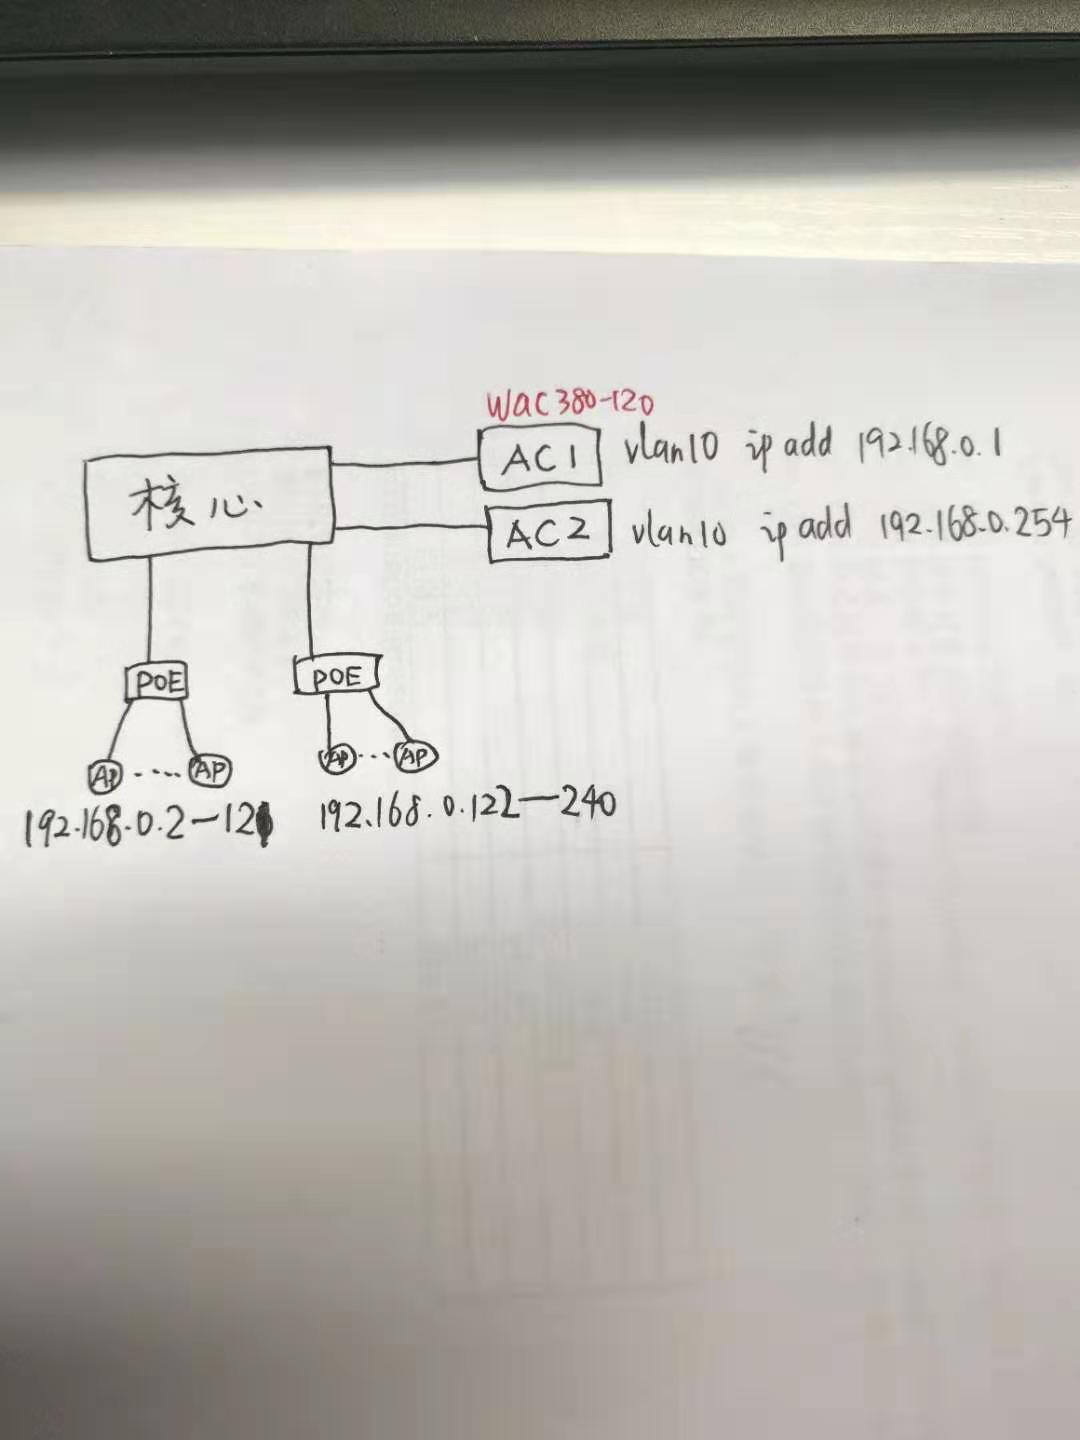 WAC380-120
AC1 vlan10 ip add 192.168.0.1
核心
AC2 vlan10 ip add 192.168.0.254
POE POE
AP ···· AP AP ··· AP
192.168.0.2—121 192.168.0.122—240